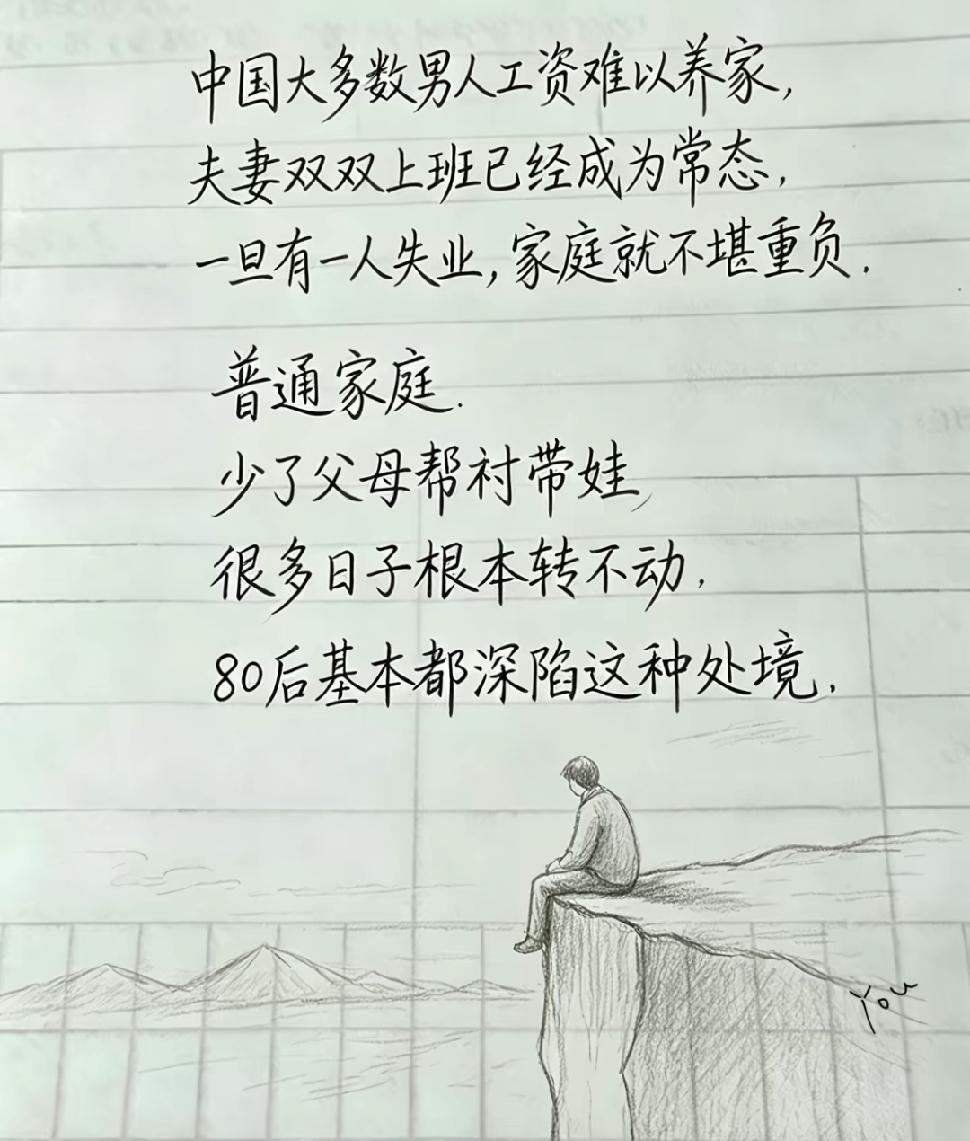 中国大多数男人工资难以养家,
夫妻双双上班已经成为常态,
一旦有一人失业,家庭就不堪重负.
普通家庭.
少了父母帮衬带娃,
很多日子根本转不动,
80后基本都深陷这种处境.
You